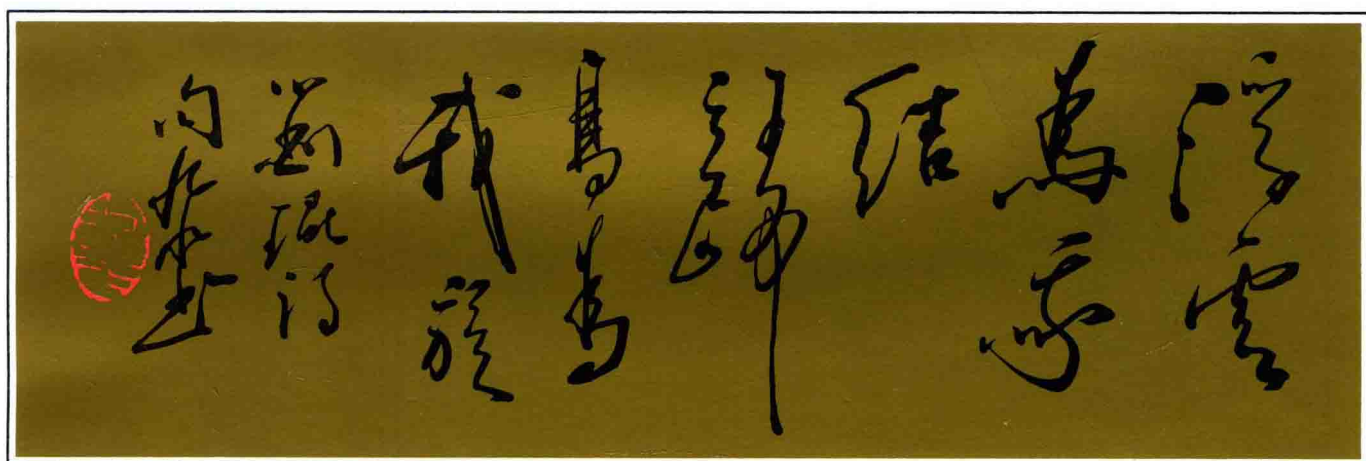 浮雲
為我
結
歸
鳥為
我旋
劉琨詩
書